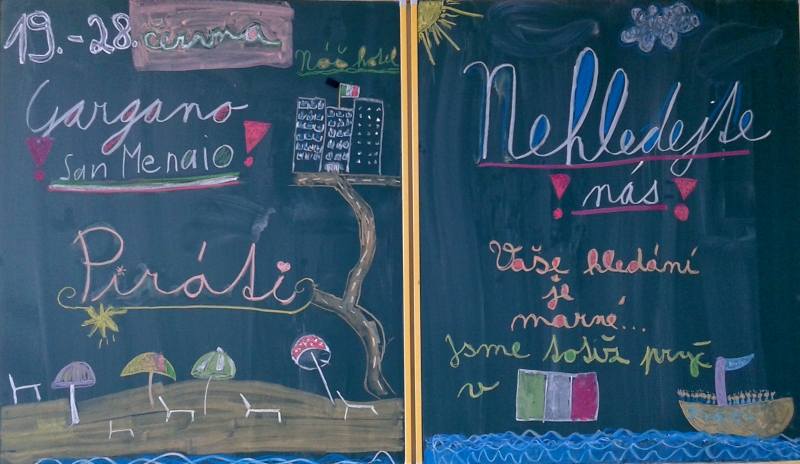 19.-28. června
Náš hotel
Gargano
! San Menaio !
Piráti
Nehledejte
! nás !
Vaše hledání
je
marné...
jsme totiž pryč
v